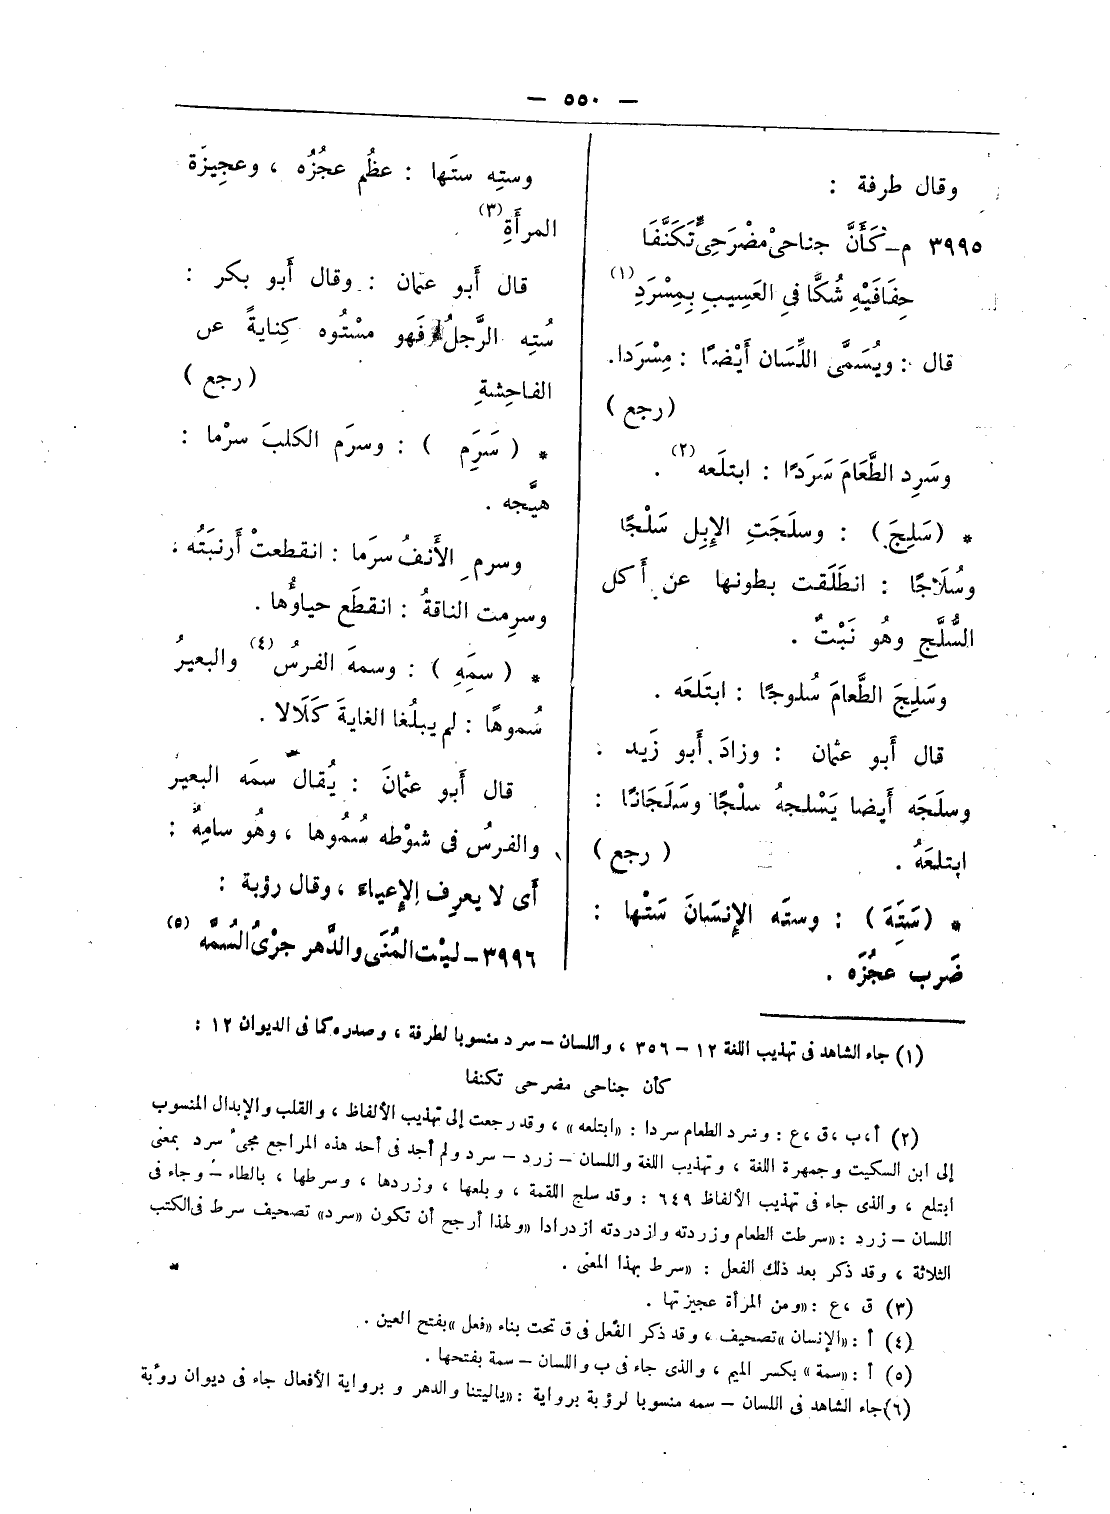 — ٥٥٠ —
وقال طرفة :
٣٩٩٥ م - كَأَنَّ جناحىْ مضْرَحِىٍّ تَكَنَّفَا
حِفَافَيْهِ شُكَّا فِي العَسِيبِ بِمِسْرَدِ(١)
قال : ويُسَمَّى اللِّسَان أَيْضًا : مِسْرَدا.
( رجع )
وسَرِد الطَّعَامَ سَرَدًا : ابتلَعه(٢) .
* (سَلِجَ) : وسلَجَتِ الإِبِل سَلْجًا
وسُلَاجًا : انطَلَقت بطونها عن أَكل
السُّلَّج وهُو نَبْتٌ .
وسَلِجَ الطَّعامَ سُلوجًا : ابتَلعَه .
قال أَبو عثمان : وزادَ أَبو زَيد :
وسلَجَه أَيضا يَسْلجهُ سلْجًا وسَلَجَانًا :
ابتلعَهُ . ( رجع )
* (سَتِهَ) : وسته الإِنسَانَ سَتْها :
ضَرب عجُزَه .
وسته ستَها : عظُم عجُزُه ، وعجِيزَة
المرأَةِ(٣) .
قال أَبو عثمان : وقال أَبو بكر :
سُتِه الرَّجلُ فَهو مسْتُوه كِنايةً عن
الفاحِشةِ ( رجع )
* ( سَرَم ) : وسرَم الكلبَ سرْما :
هيَّجه .
وسرم الأَنفُ سرَما : انقطعتْ أَرنبَتُه ،
وسرِمت الناقةُ : انقطَع حياؤُها .
* ( سمِهِ ) : وسمهَ الفرسُ(٤) والبعيرُ
سُموهًا : لم يبلُغا الغايةَ كَلَالا .
قال أَبو عثمانَ : يُقال سمَه البعيرُ
والفرسُ فى شوْطه سُمُوها ، وهُو سامِهٌ :
أَى لا يعرِف الإِعياء ، وقال رؤبة :
٣٩٩٦ - ليْت المُنَى والدَّهر جرْىُ السُّمَّه(٥)
(١) جاء الشاهد فى تهذيب اللغة ١٢ - ٣٥٦ ، واللسان - سرد منسوبا لطرفة ، وصدره كما فى الديوان ١٢ :
كأن جناحى مضرحى تكنفا
(٢) أ،ب ،ق ،ع : وسرد الطعام سردا : «ابتلعه» ، وقد رجعت إلى تهذيب الألفاظ ، والقلب والإبدال المنسوب
إلى ابن السكيت وجمهرة اللغة ، وتهذيب اللغة واللسان - زرد - سرد ولم أجد فى أحد هذه المراجع مجىء سرد بمعنى
ابتلع ، والذى جاء فى تهذيب الألفاظ ٦٤٩ : وقد سلج اللقمة ، وبلعها ، وزردها ، وسرطها ، بالطاء - وجاء فى
اللسان - زرد : «سرطت الطعام وزردته وازدردته ازدرادا «ولهذا أرجح أن تكون «سرد» تصحيف سرط فى الكتب
الثلاثة ، وقد ذكر بعد ذلك الفعل : «سرط بهذا المعنى .
(٣) ق ،ع : «ومن المرأة عجيزتها .
(٤) أ : «الإنسان »تصحيف ، وقد ذكر الفعل فى ق تحت بناء «فعل »بفتح العين .
(٥) أ : «سمة» بكسر الميم ، والذى جاء فى ب واللسان - سمة بفتحها .
(٦)جاء الشاهد فى اللسان - سمه منسوبا لرؤبة برواية : «ياليتنا والدهر و برواية الأفعال جاء فى ديوان رؤبة